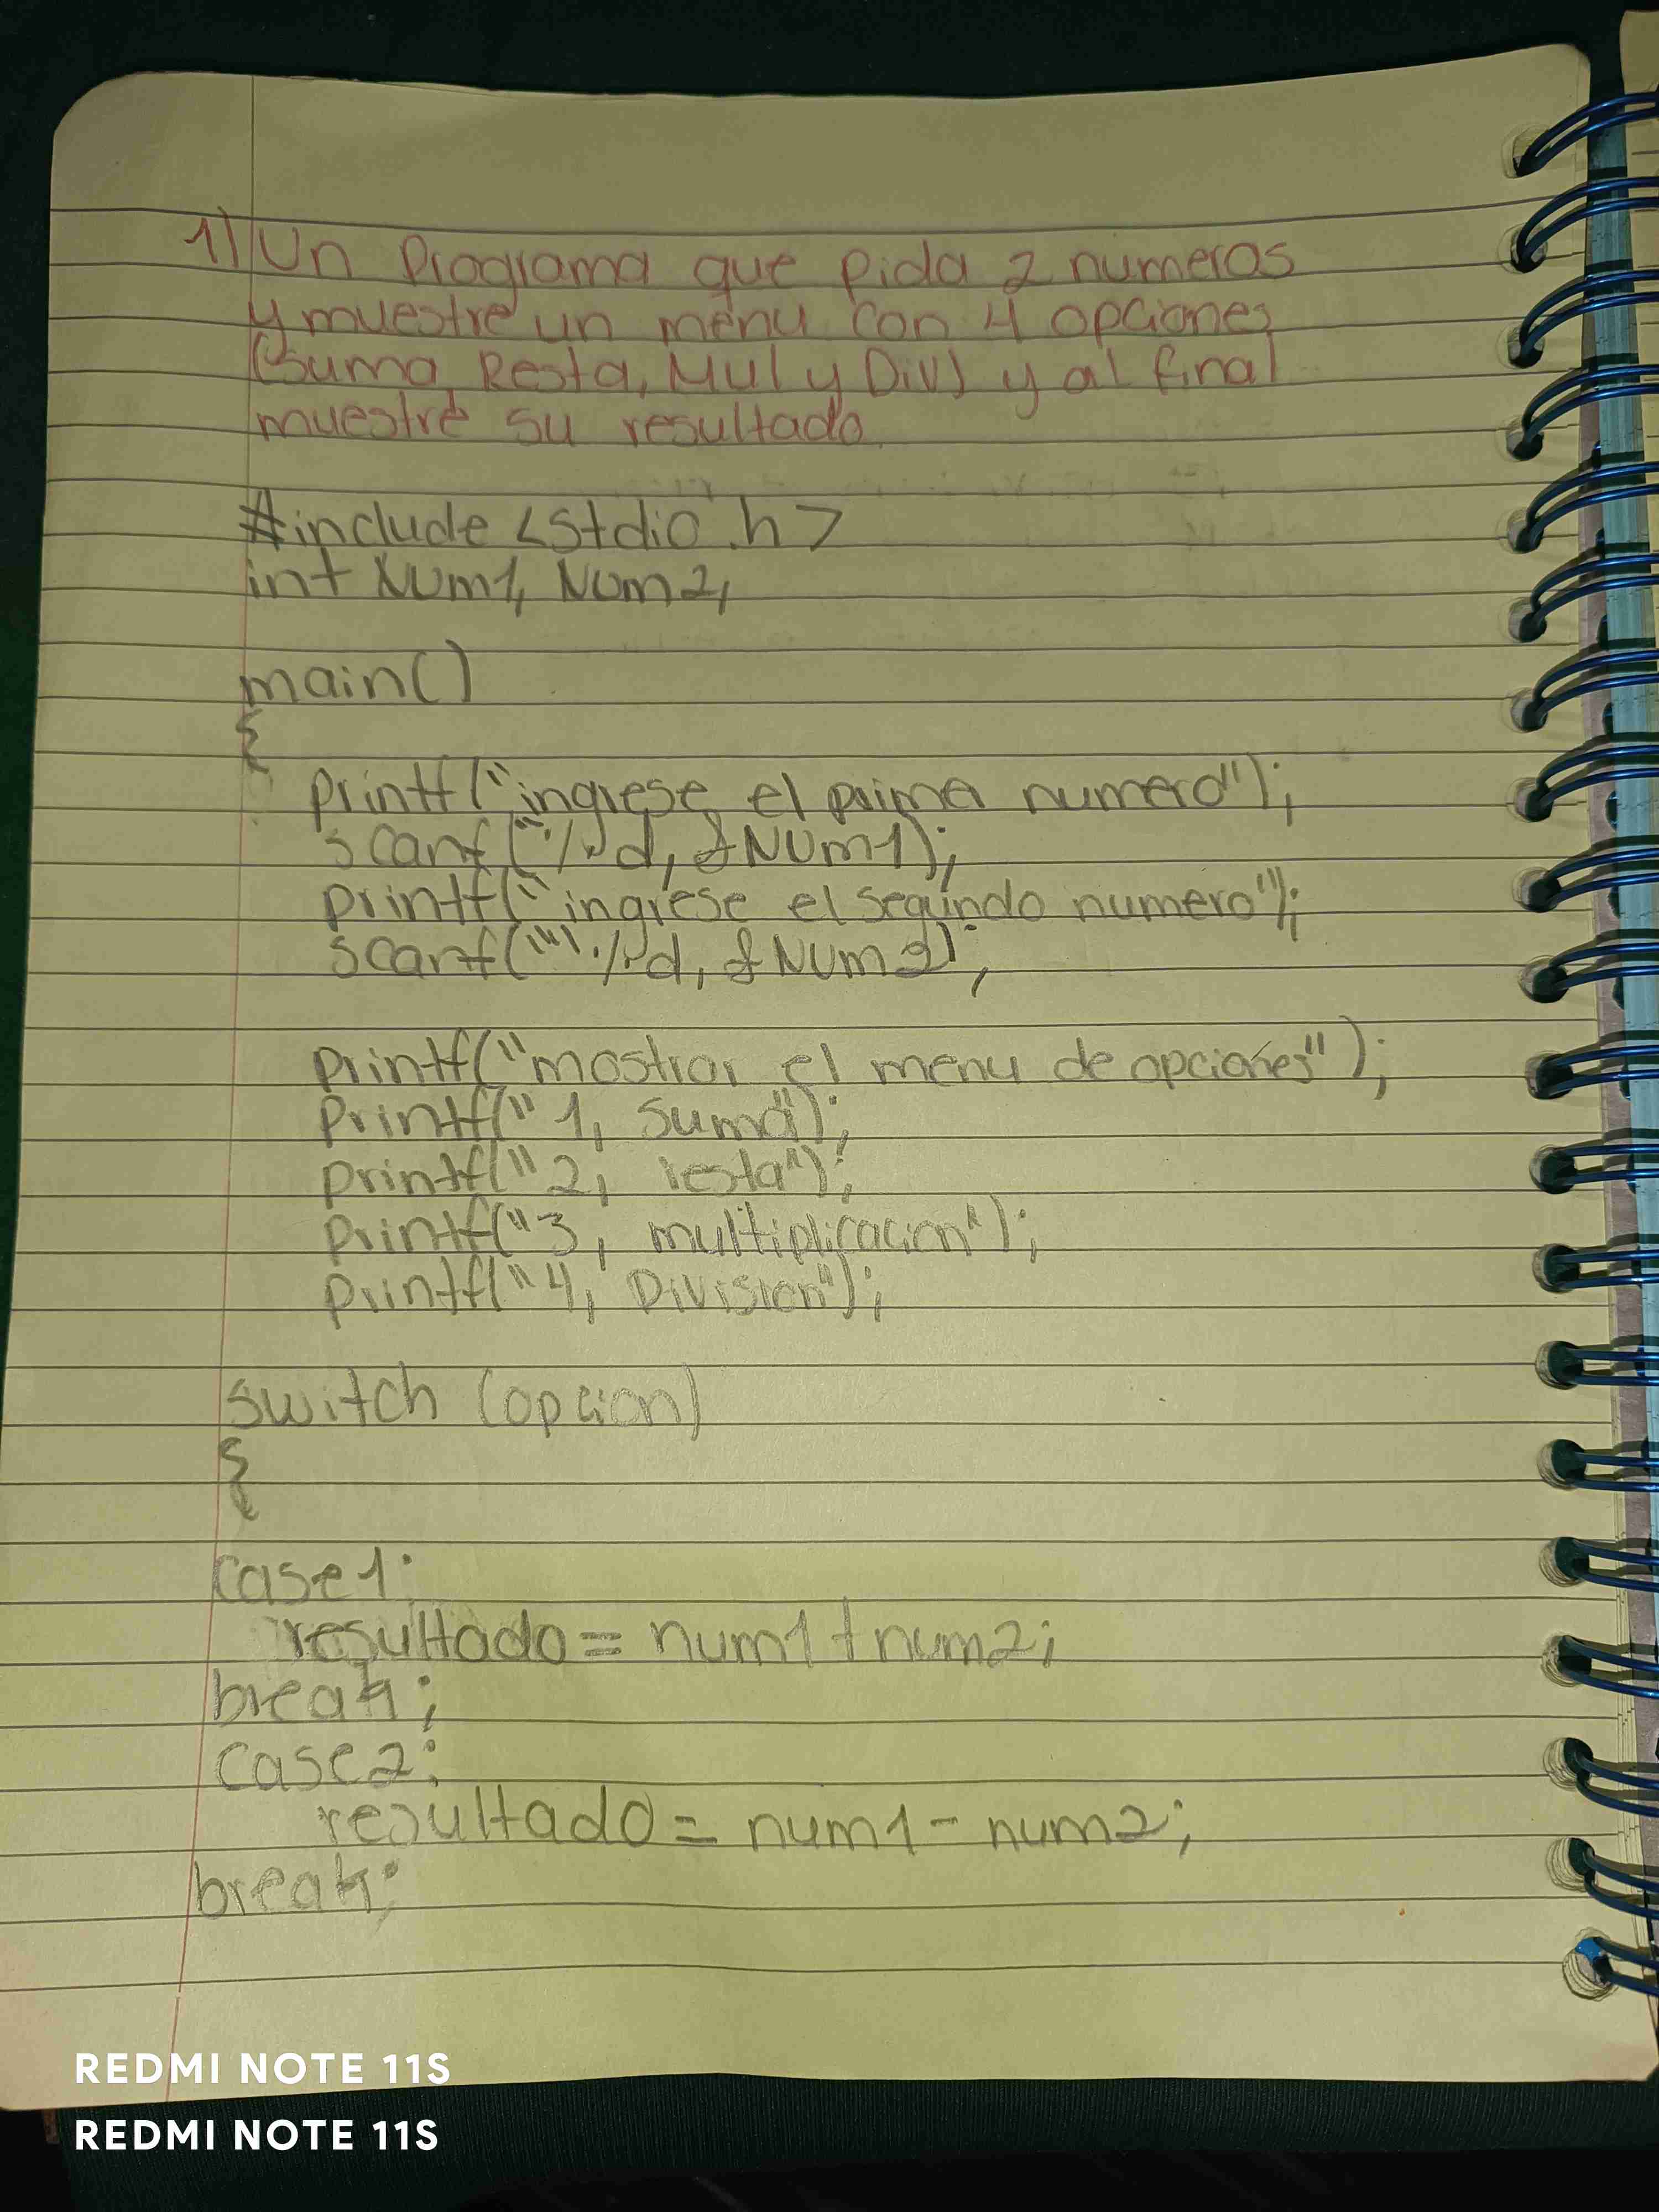 1) Un Programa que pida 2 numeros
y muestre un menu con 4 opciones
(Suma, Resta, Mul y Div) y al final
muestre su resultado.
#include <stdio.h>
int Num1, Num2,
main()
{
printf("ingrese el primer numero");
scanf("%d, &Num1);
printf("ingrese el segundo numero");
scanf(""%d, &Num2);
printf("mostrar el menu de opciones");
Printf("1, Suma");
printf("2, resta");
printf("3, multiplicacion");
printf("4, Division");
switch (opcion)
{
case1:
resultado = num1 + num2;
break;
case2:
resultado = num1 - num2;
break;
REDMI NOTE 11S
REDMI NOTE 11S